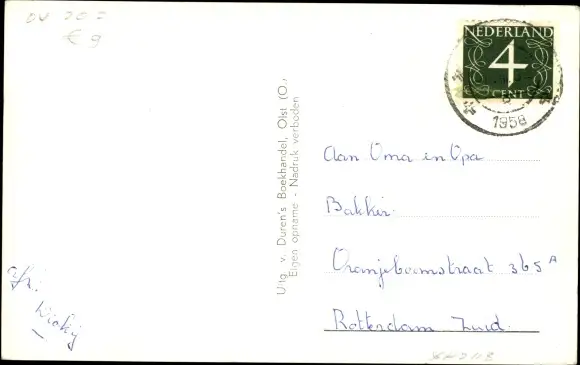 € 9
NEDERLAND
4
CENT
8
1958
Uitg. v. Duren's Boekhandel, Olst (O.,
Eigen opname - Nadruk verboden
Aan Oma en Opa
Bakker.
Oranjeboomstraat 365 A
Rotterdam Zuid.